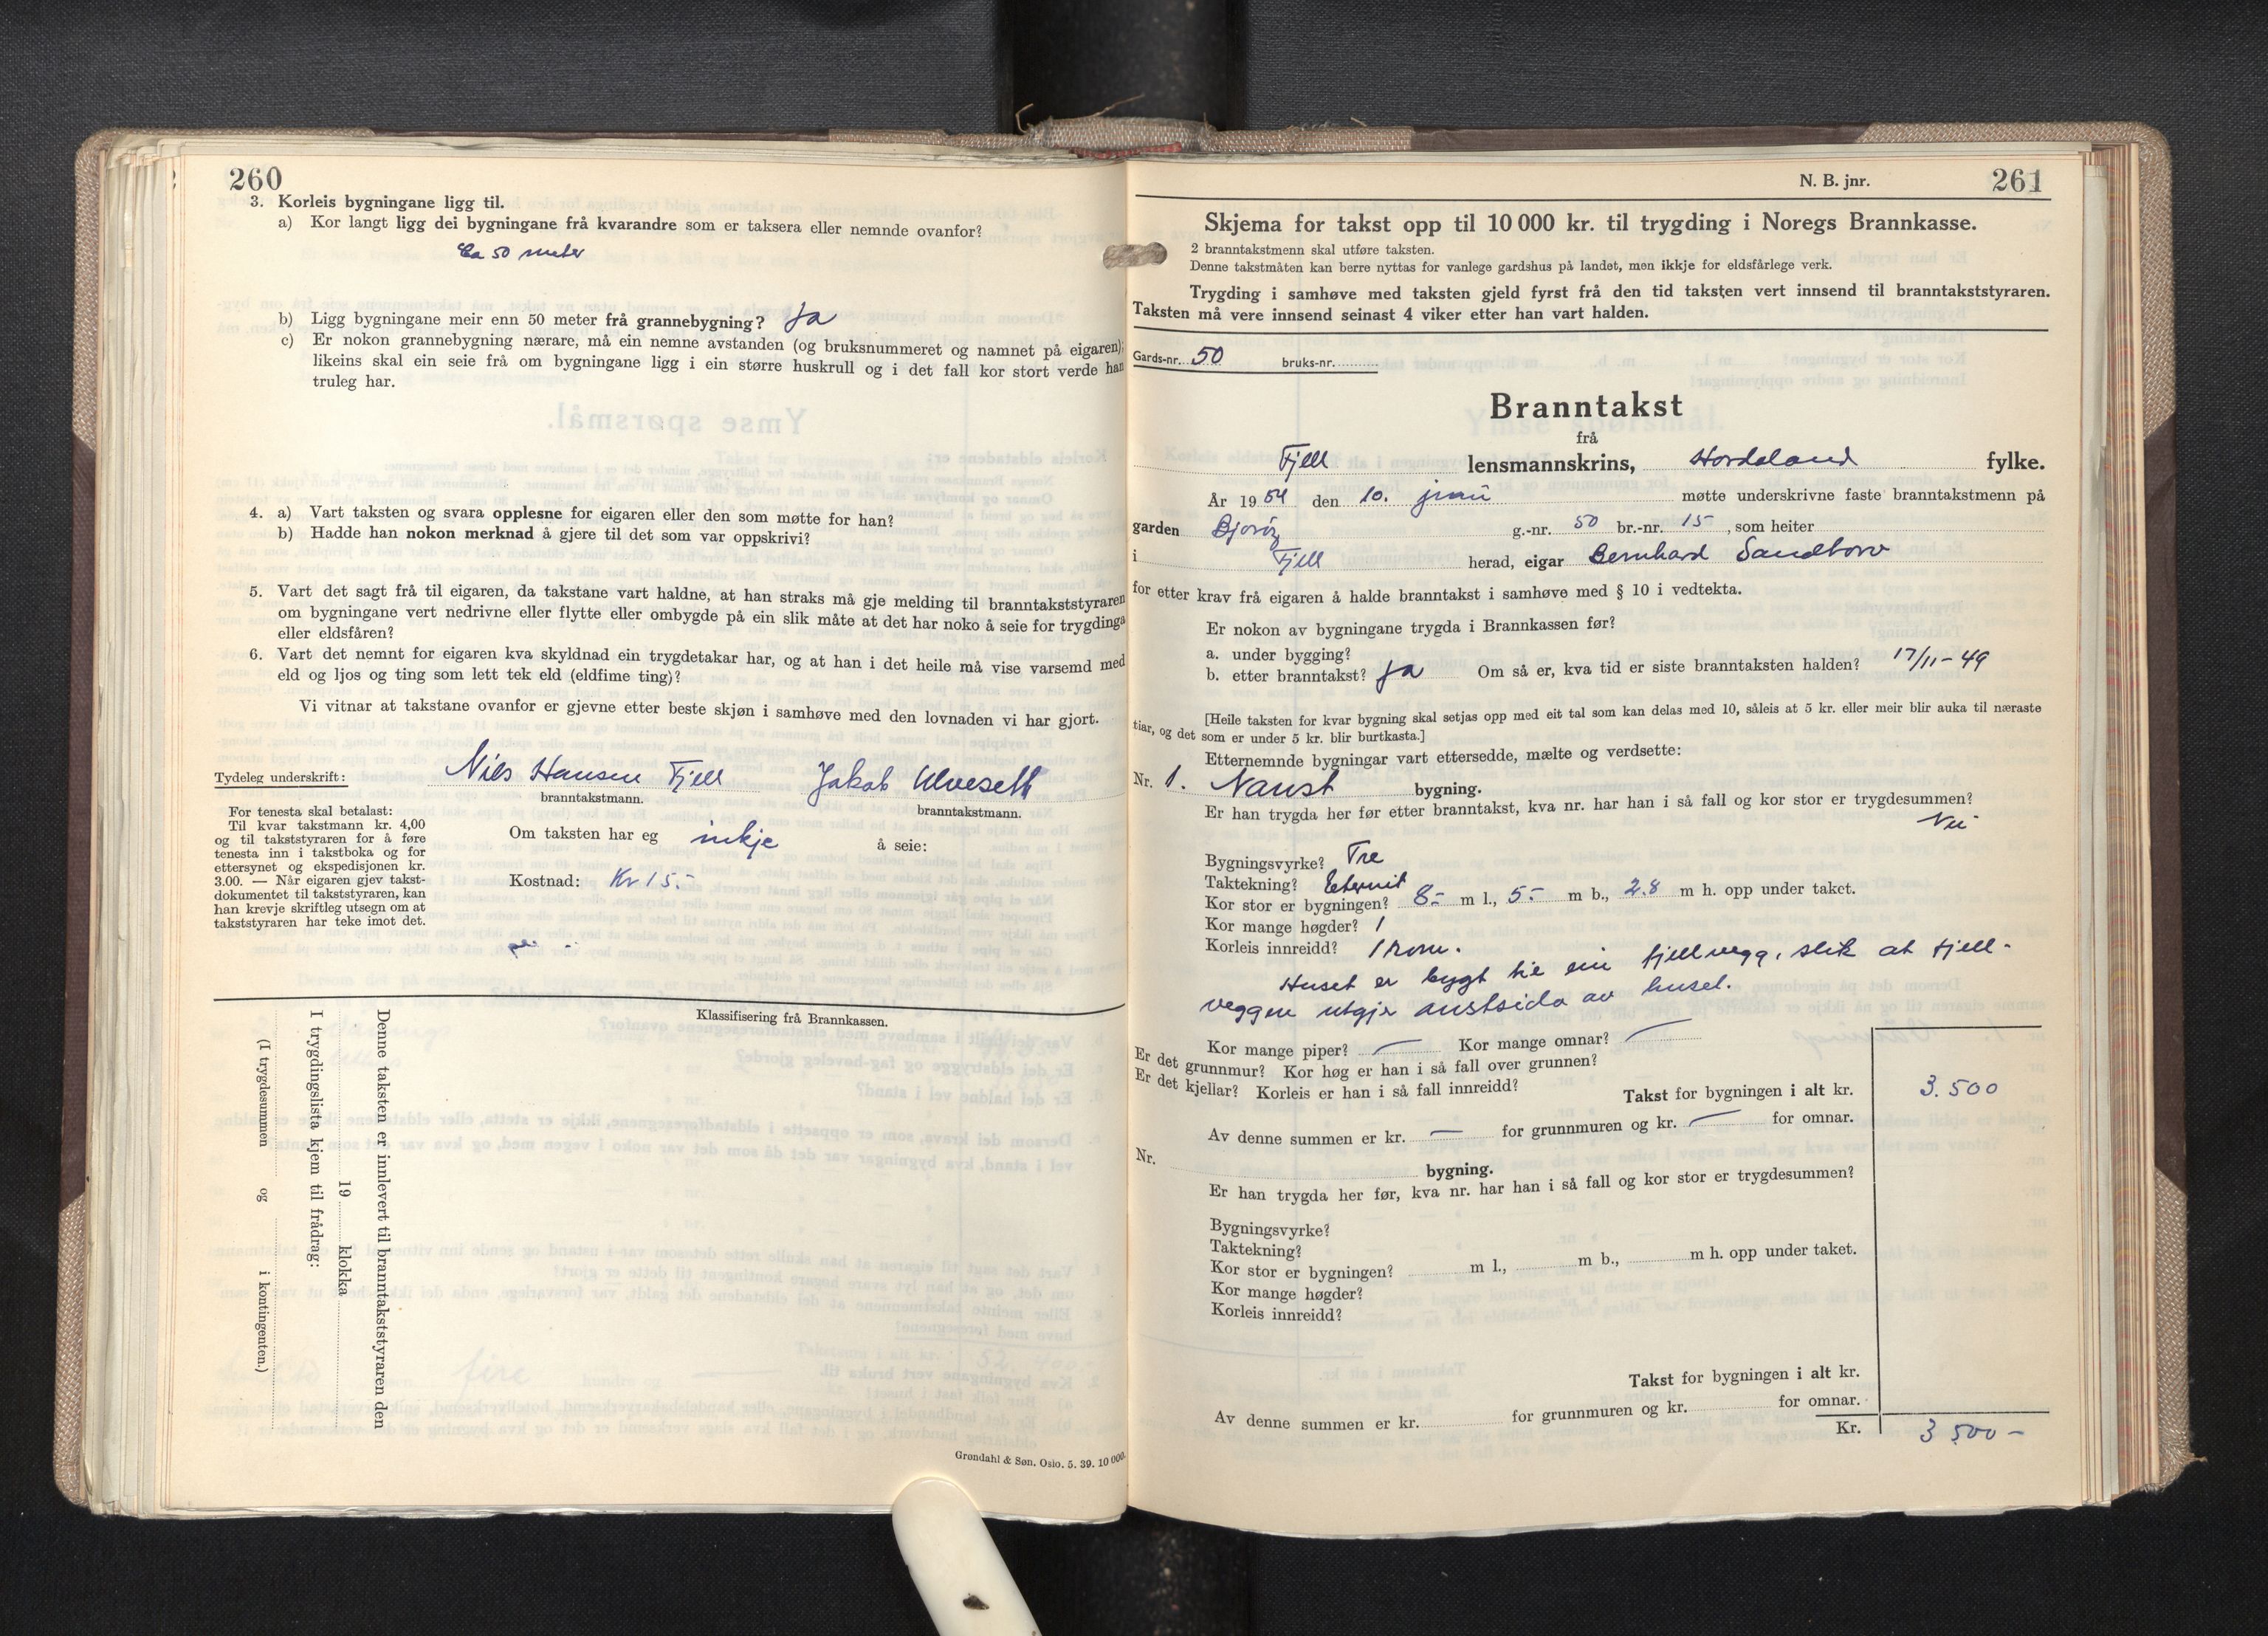 260
3. Korleis bygningane ligg til.
a) Kor langt ligg dei bygningane frå kvarandre som er taksera eller nemnde ovanfor?
Ca 50 meter
b) Ligg bygningane meir enn 50 meter frå grannebygning? Ja
c) Er nokon grannebygning nærare, må ein nemne avstanden (og bruksnummeret og namnet på eigaren);
likeins skal ein seie frå om bygningane ligg i ein større huskrull og i det fall kor stort verde han
truleg har.
4. a) Vart taksten og svara opplesne for eigaren eller den som møtte for han?
b) Hadde han nokon merknad å gjere til det som var oppskrivi?
5. Vart det sagt frå til eigaren, da takstane vart haldne, at han straks må gje melding til branntakststyraren
om bygningane vert nedrivne eller flytte eller ombygde på ein slik måte at det har noko å seie for trygdinga
eller eldsfåren?
6. Vart det nemnt for eigaren kva skyldnad ein trygdetakar har, og at han i det heile må vise varsemd med
eld og ljos og ting som lett tek eld (eldfime ting)?
Vi vitnar at takstane ovanfor er gjevne etter beste skjøn i samhøve med den lovnaden vi har gjort.
Tydeleg underskrift: Nils Hansen Fjell Jakob Ulveseth
branntakstmann. branntakstmann.
For tenesta skal betalast:
Til kvar takstmann kr. 4,00
og til takststyraren for å føre
tenesta inn i takstboka og for
ettersynet og ekspedisjonen kr.
3.00. — Når eigaren gjev takst-
dokumentet til takststyraren, kan
han krevje skriftleg utsegn om at
takststyraren har teke imot det.
Om taksten har eg inkje å seie:
Kostnad: Kr 15.-
Klassifisering frå Brannkassen.
Denne taksten er innlevert til branntakststyraren den
19 klokka
I trygdingslista kjem til frådrag:
(I trygdesummen og i kontingenten.)
Grøndahl & Søn. Oslo. 5. 39. 10 000.
N. B. jnr. 261
Skjema for takst opp til 10 000 kr. til trygding i Noregs Brannkasse.
2 branntakstmenn skal utføre taksten.
Denne takstmåten kan berre nyttas for vanlege gardshus på landet, men ikkje for eldsfårlege verk.
Trygding i samhøve med taksten gjeld fyrst frå den tid taksten vert innsend til branntakststyraren.
Taksten må vere innsend seinast 4 viker etter han vart halden.
Gards-nr. 50 bruks-nr.
Branntakst
frå
Fjell lensmannskrins, Hordaland fylke.
År 1954 den 10. juni møtte underskrivne faste branntakstmenn på
garden Bjorøy g.-nr. 50 br.-nr. 15 , som heiter
i Fjell herad, eigar Bernhard Sandtorv
for etter krav frå eigaren å halde branntakst i samhøve med § 10 i vedtekta.
Er nokon av bygningane trygda i Brannkassen før?
a. under bygging?
b. etter branntakst? Ja Om så er, kva tid er siste branntaksten halden? 17/11-49
[Heile taksten for kvar bygning skal setjas opp med eit tal som kan delas med 10, såleis at 5 kr. eller meir blir auka til næraste
tiar, og det som er under 5 kr. blir burtkasta.]
Etternemnde bygningar vart ettersedde, mælte og verdsette:
Nr. 1. Naust bygning.
Er han trygda her før etter branntakst, kva nr. har han i så fall og kor stor er trygdesummen?
Nei
Bygningsvyrke? Tre
Taktekning? Eternit
Kor stor er bygningen? 8.- m l., 5.- m b., 2.8 m h. opp under taket.
Kor mange høgder? 1
Korleis innreidd? 1 rom.
Huset er bygt til ein fjellvegg, slik at fjell-
veggen utgjer austsida av huset.
Kor mange piper? — Kor mange omnar? —
Er det grunnmur? Kor høg er han i så fall over grunnen?
Er det kjellar? Korleis er han i så fall innreidd?
Takst for bygningen i alt kr. 3.500
Av denne summen er kr. — for grunnmuren og kr. — for omnar.
Nr. bygning.
Er han trygda her før, kva nr. har han i så fall og kor stor er trygdesummen?
Bygningsvyrke?
Taktekning?
Kor stor er bygningen? m l., m b., m h. opp under taket.
Kor mange høgder?
Korleis innreidd?
Takst for bygningen i alt kr.
Av denne summen er kr. for grunnmuren og kr. for omnar.
Kr. 3 500 -